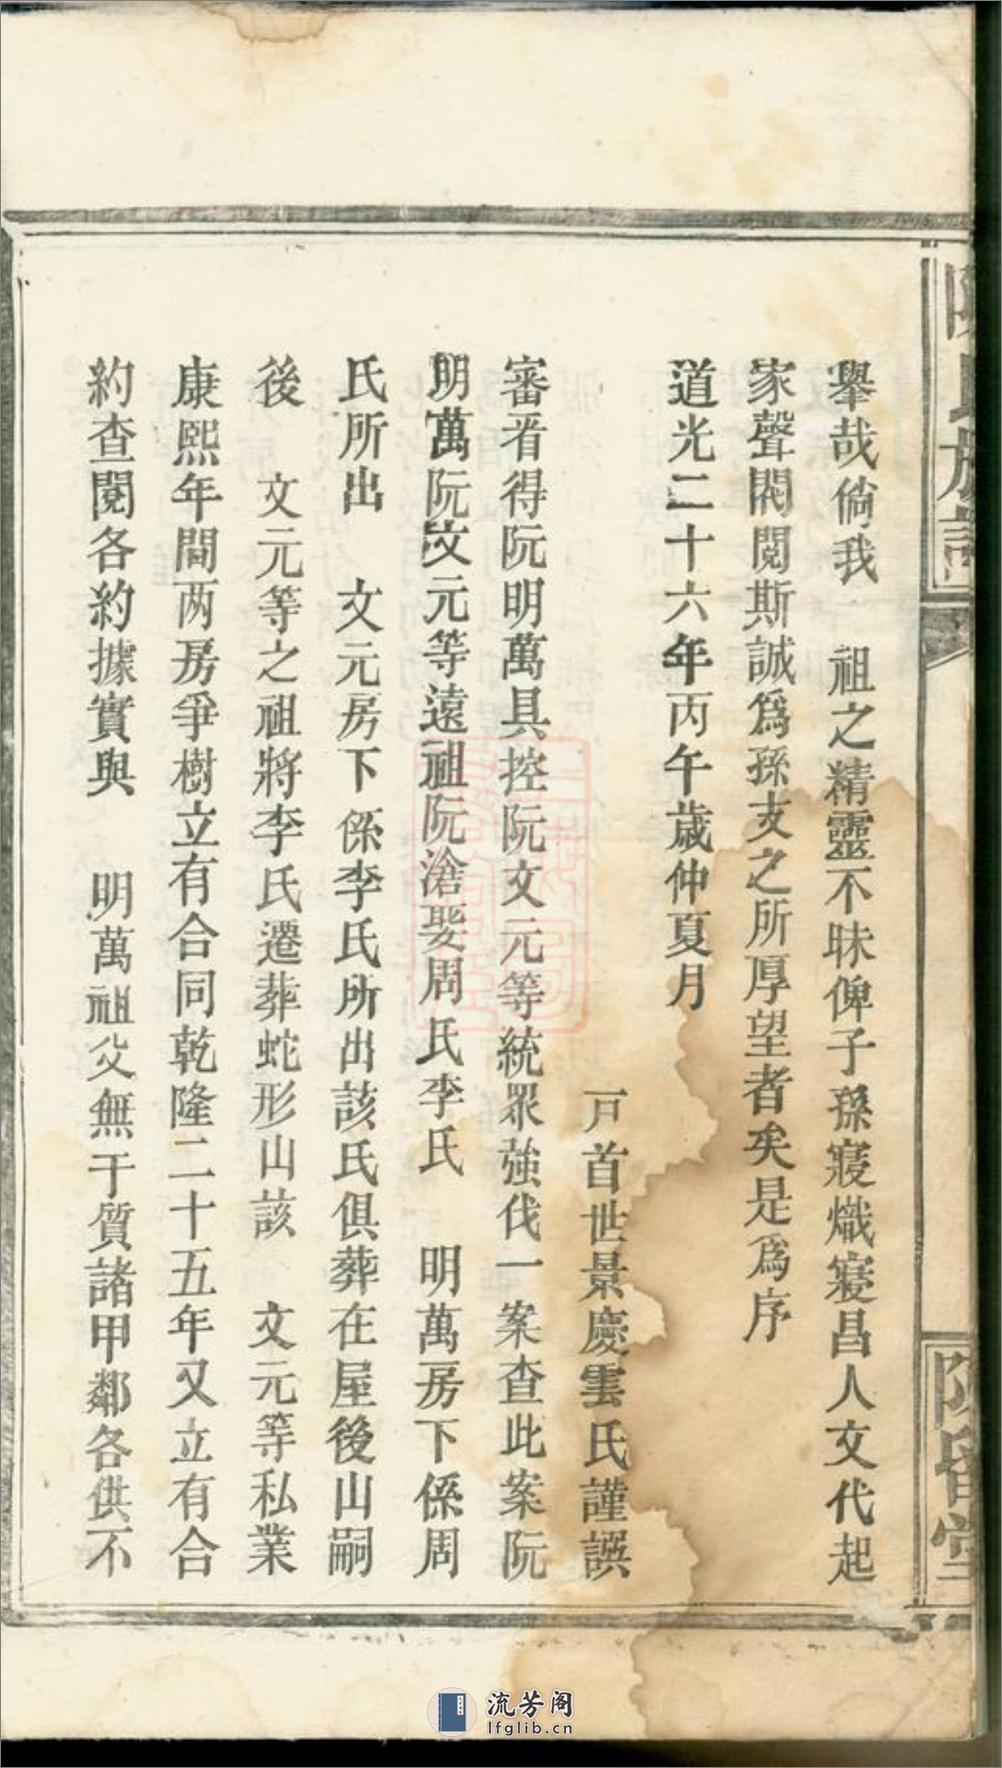 舉哉倘我 祖之精靈不昧俾子孫寖熾寖昌人文代起
家聲閥閱斯誠為孫支之所厚望者矣是為序
道光二十六年丙午歲仲夏月
戸首世景慶雲氏謹譔
審看得阮明萬具控阮文元等統眾強伐一案查此案阮
明萬阮文元等遠祖阮滄娶周氏李氏 明萬房下係周
氏所出 文元房下係李氏所出該氏俱葬在屋後山嗣
後 文元等之祖將李氏遷葬蛇形山該 文元等私業
康熙年間两房爭樹立有合同乾隆二十五年又立有合
約查閱各約據實與 明萬祖父無干質諸甲鄰各供不
氏族譜
陳留堂
流芳阁
lfglib.cn